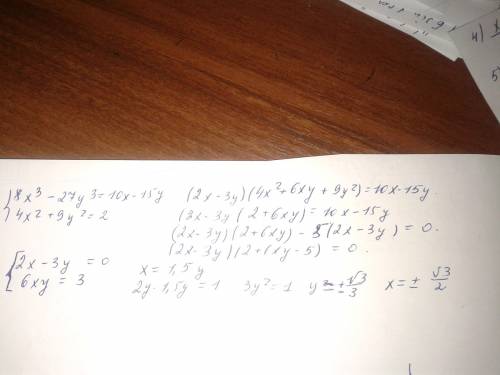 8x³ - 27y³ = 10x - 15y
4x² + 9y² = 2
(2x - 3y)(4x² + 6xy + 9y²) = 10x - 15y
(2x - 3y (2 + 6xy) = 10x - 15y
(2x - 3y)(2 + 6xy) - 5(2x - 3y) = 0.
(2x - 3y)(2 + 6xy - 5) = 0.
2x - 3y = 0
6xy = 3
x = 1,5y
2y · 1,5y = 1 3y² = 1 y = ± √3/3 x = ± √3/2
4)